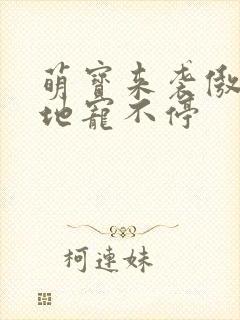 萌寶来袭傲
地寵不停
柯連妹